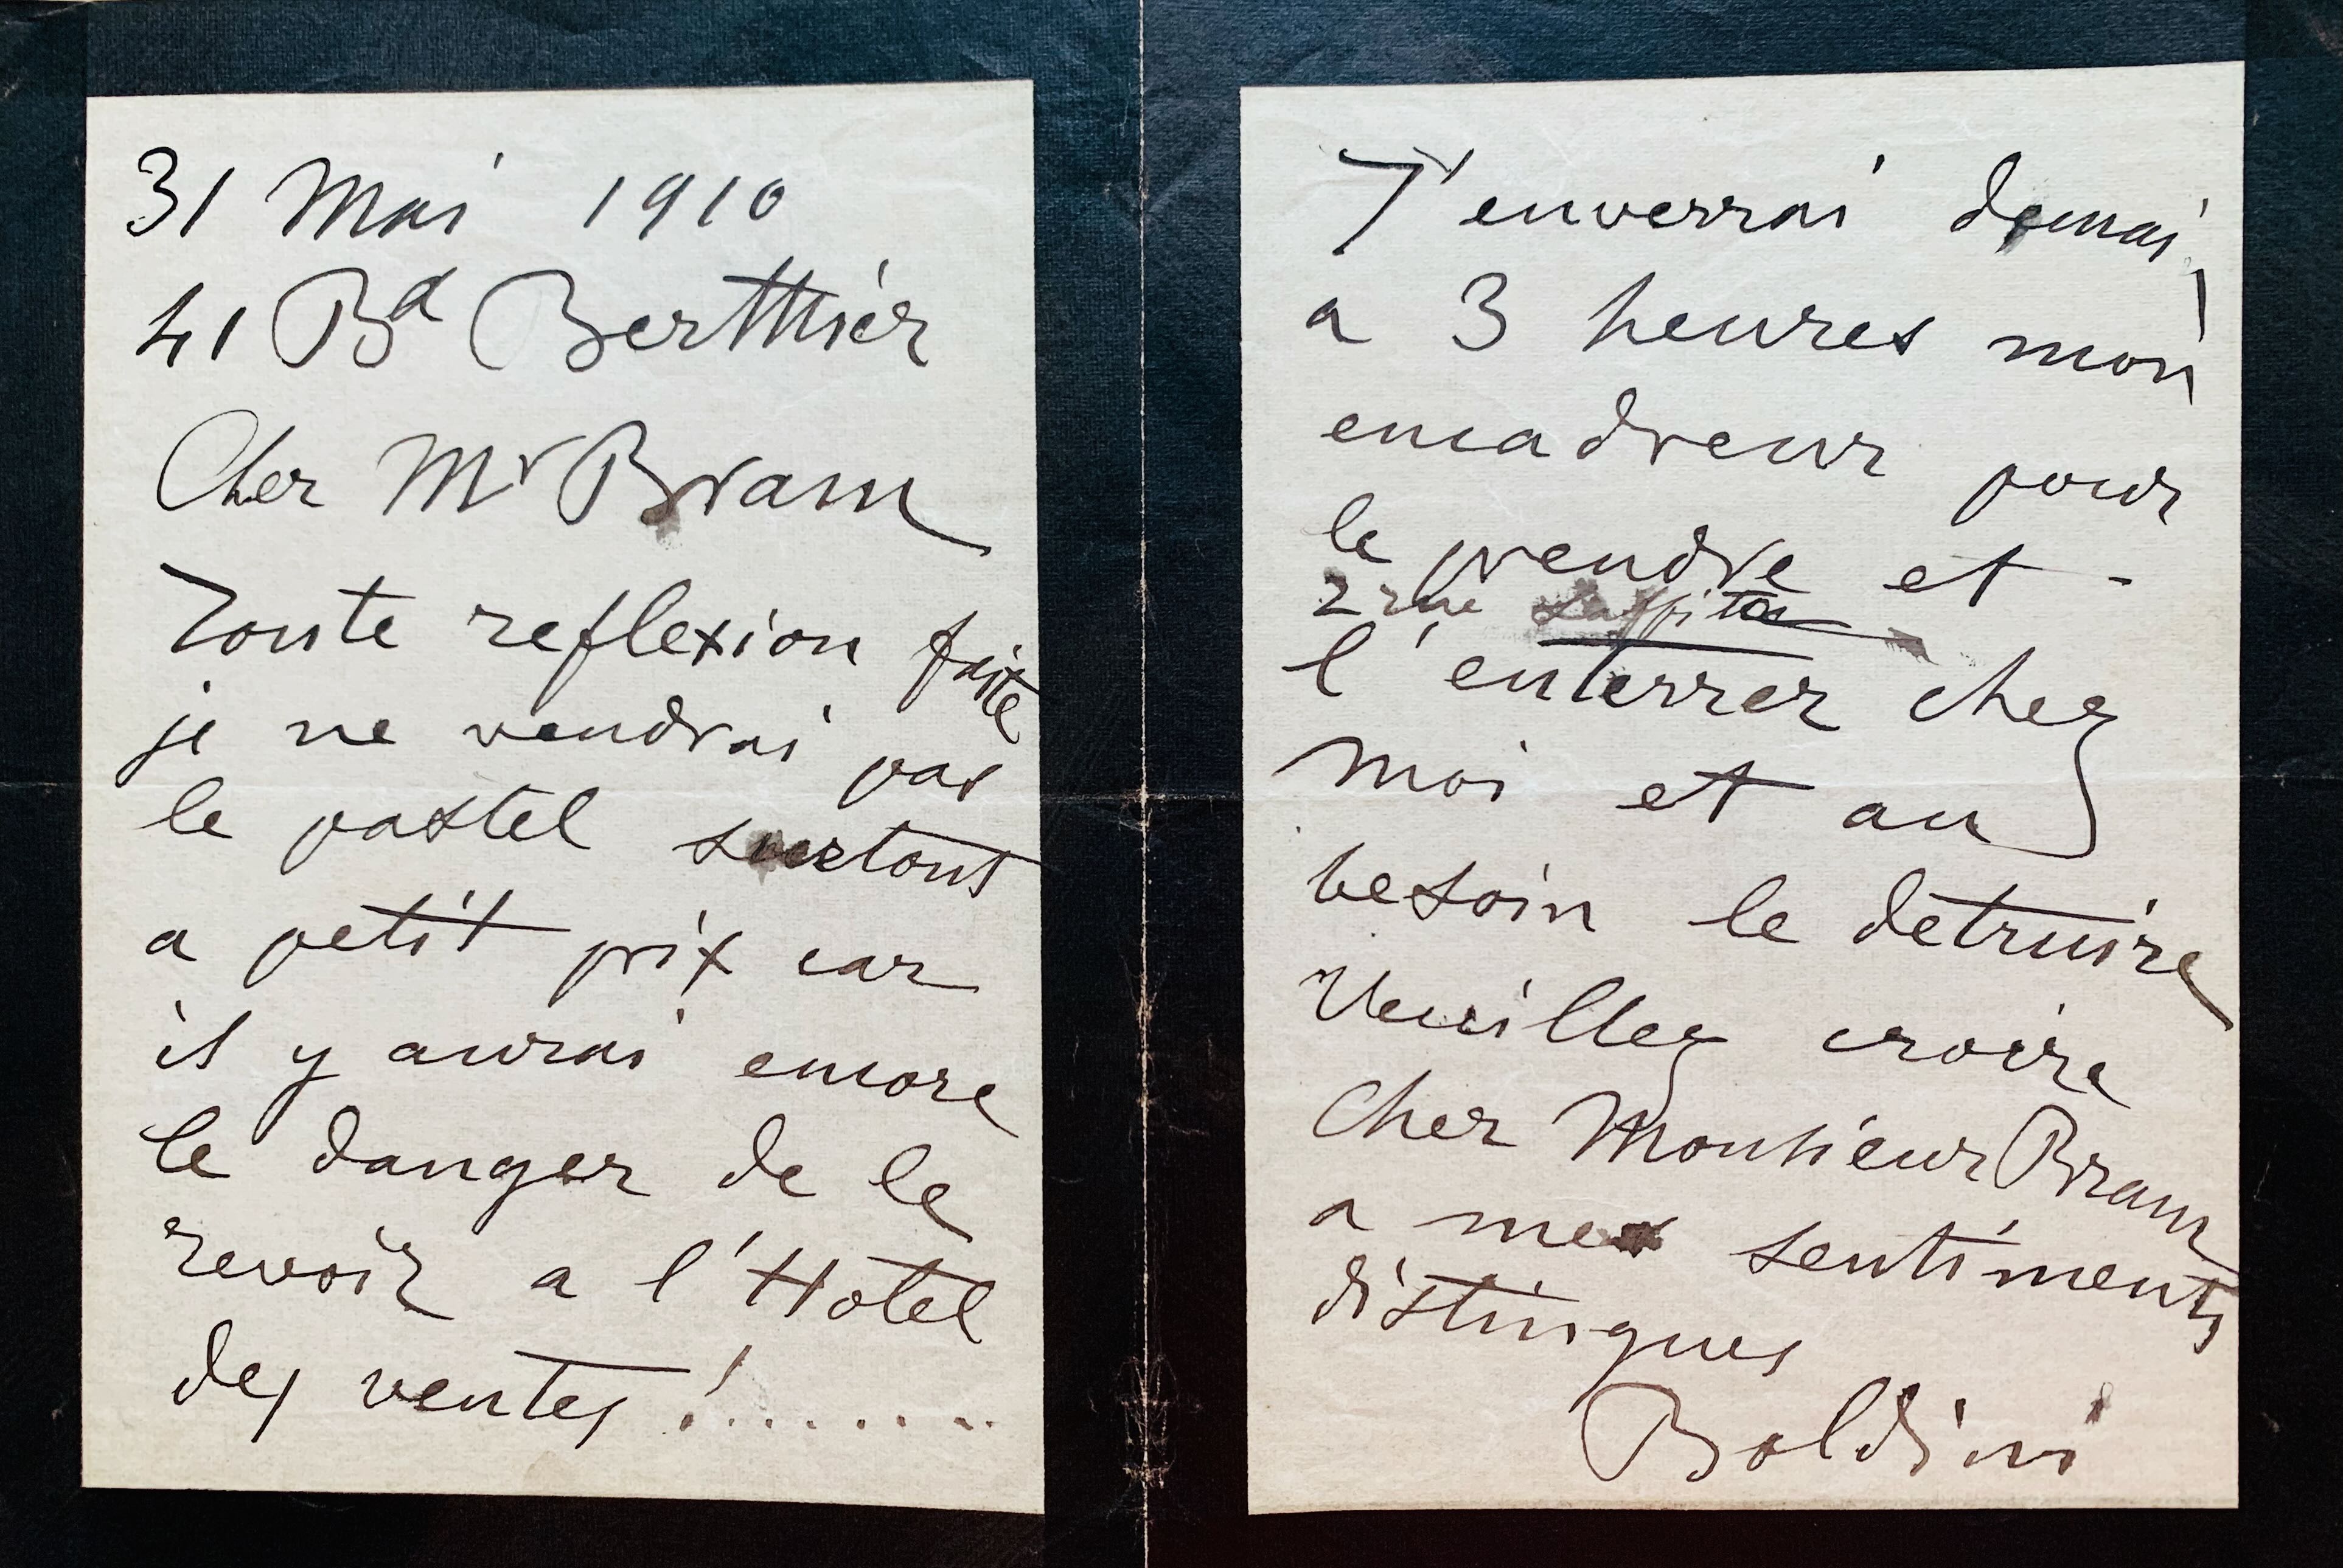 31 Mai 1910
41 Bd Berthier
Cher Mr Bram
Toute reflexion faite
je ne vendrai pas
le pastel surtout
a petit prix car
il y aurai encore
le danger de le
revoir a l'Hotel
des ventes ! . . . . . . . .
J'enverrai demain
a 3 heures mon
encadreur pour
le prendre et -
2 rue
l'enterrer chez
moi et au
besoin le detruire
Veuillez croire
Cher Monsieur Bram
a mes sentiments
distingues
Boldini